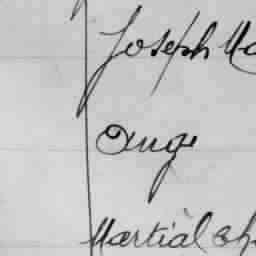 Joseph Ma
Ange
Martial Ch